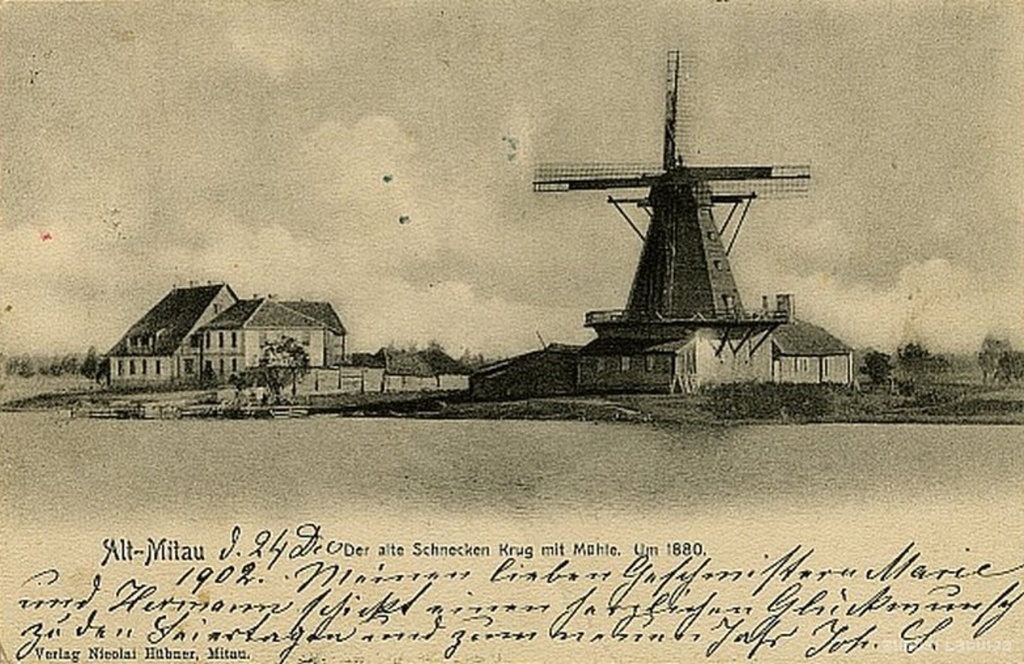 Alt-Mitau d. 24 Dec Der alte Schnecken Krug mit Mühle. Um 1880.
1902. Meinen lieben Geschwistern Marie
und Hermann schickt einen herzlichen Glückwunsch
zu den Feiertagen und zum neuen Jahr Joh. S.
Verlag Nicolai Hübner, Mitau.